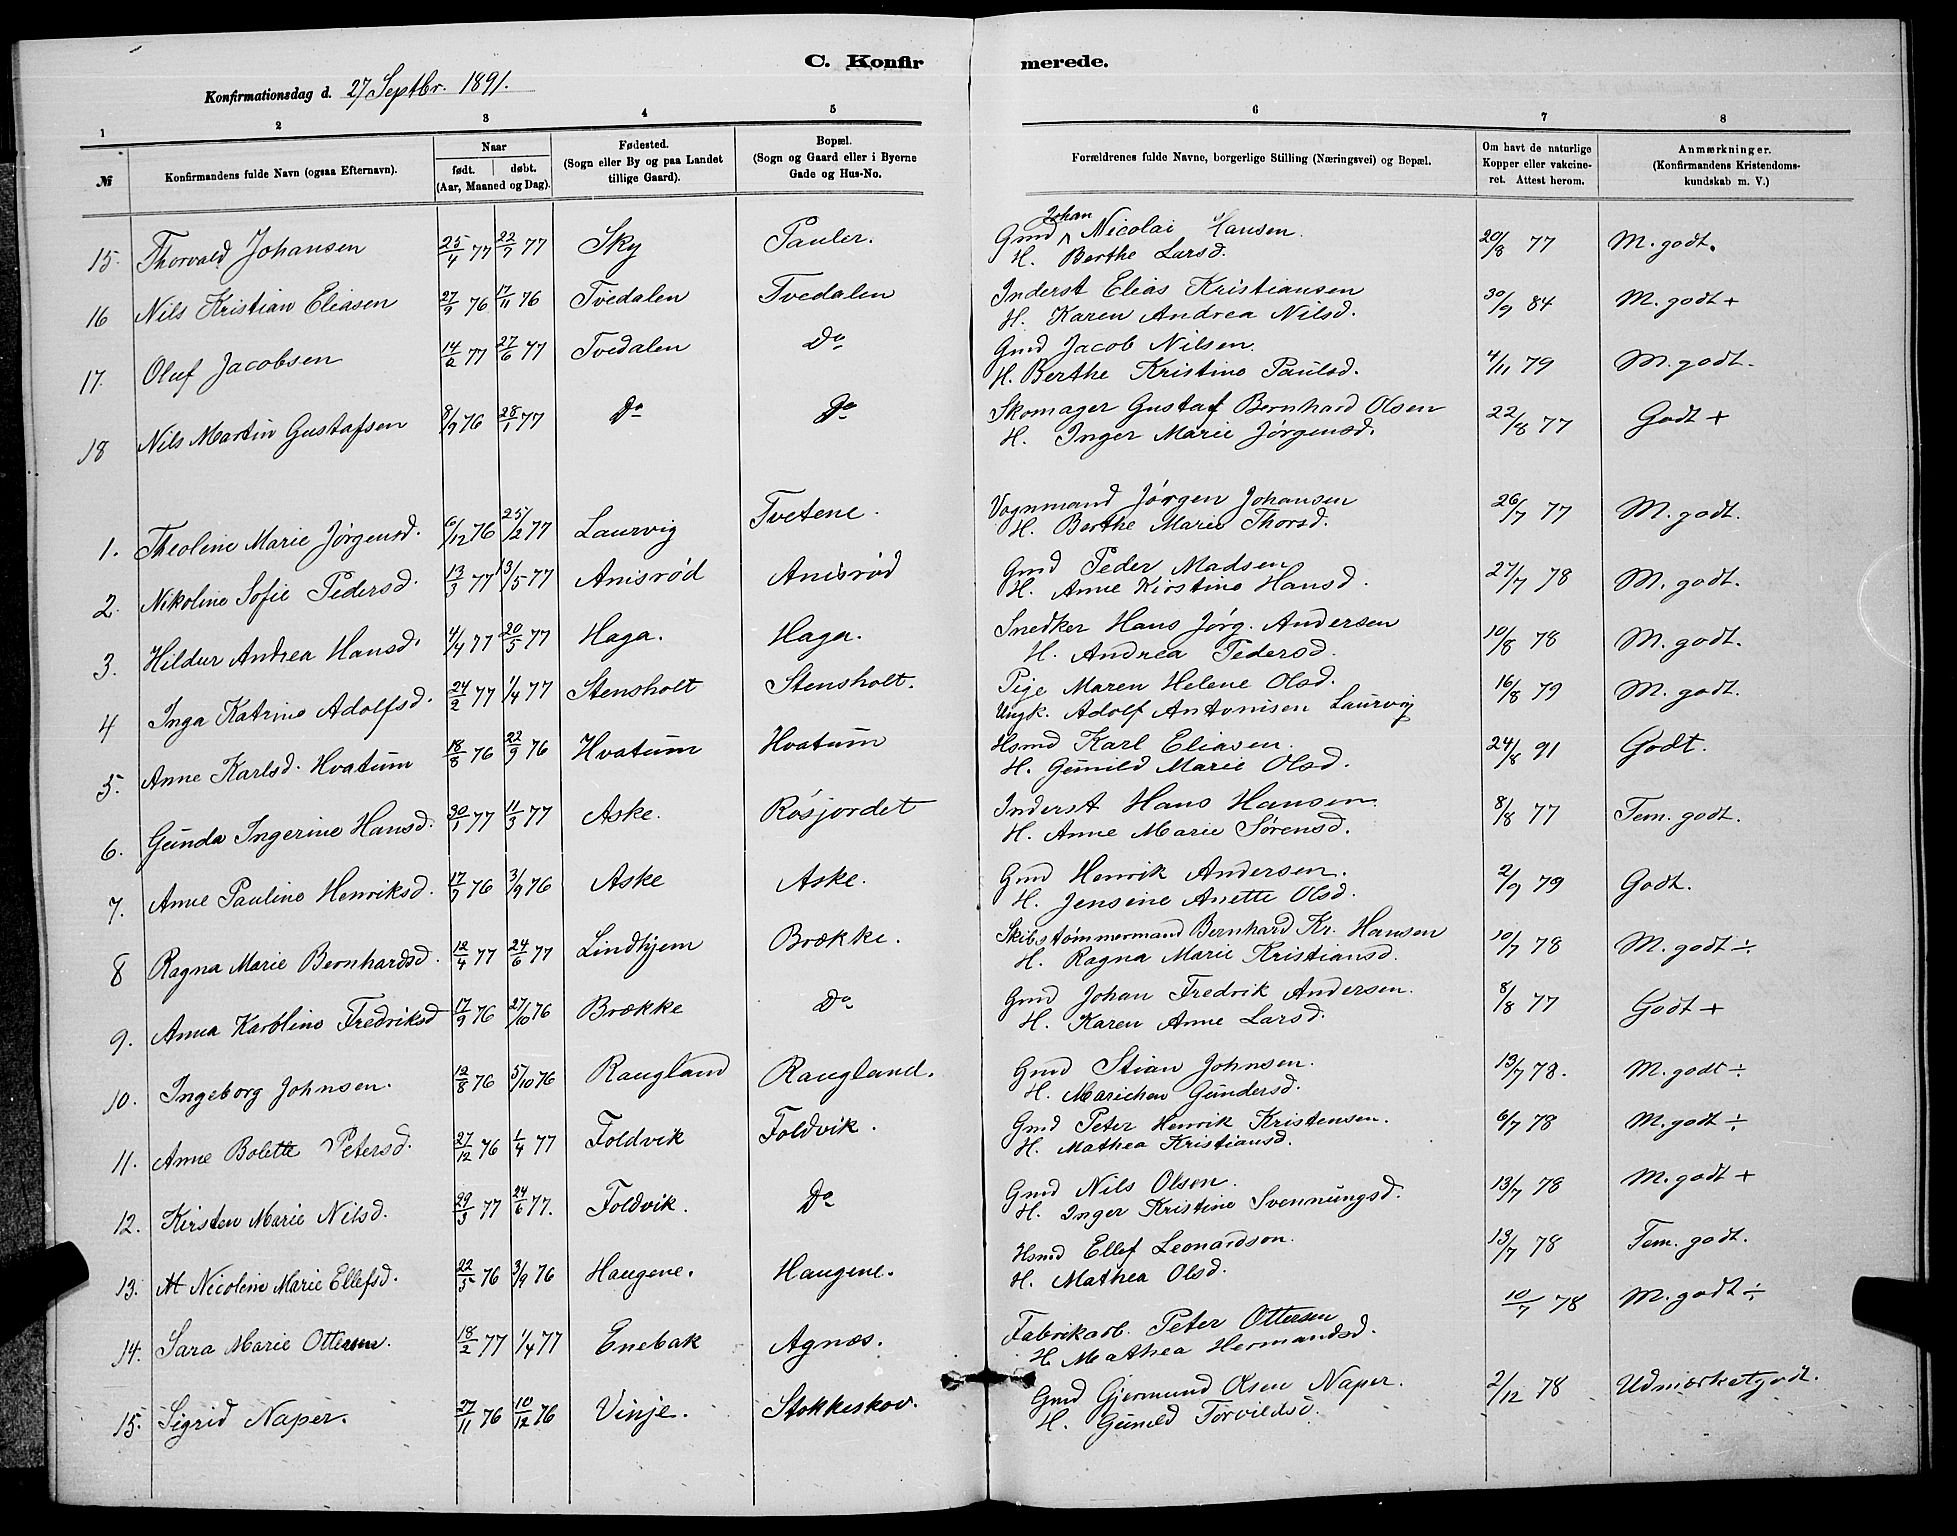 C. Konfirmerede.
Konfirmationsdag d. 27 Septbr. 1891.
1 2 3 4 5 6 7 8
№ Konfirmandens fulde Navn (ogsaa Efternavn). Naar født. døbt. (Aar, Maaned og Dag). Fødested. (Sogn eller By og paa Landet tillige Gaard). Bopæl. (Sogn og Gaard eller i Byerne Gade og Hus-No. Forældrenes fulde Navne, borgerlige Stilling (Næringsvei) og Bopæl. Om havt de naturlige Kopper eller vakcineret. Attest herom. Anmærkninger. (Konfirmandens Kristendomskundskab m. V.)
15. Thorvald Johansen 25/4 77 22/7 77 Sky Pauler. Gmd Johan Nicolai Hansen. 20/8 77 M. godt.
H. Berthe Larsd.
16 Nils Kristian Eliasen 27/9 76 17/11 76 Tvedalen Tvedalen Inderst Elias Kristiansen 30/9 84 M. godt +
H. Karen Andrea Nilsd.
17. Oluf Jacobsen 14/2 77 27/6 77 Tvedalen Do Gmd Jacob Nilsen. 4/11 79 M. godt.
H. Berthe Kristine Paulsd.
18 Nils Martin Gustafsen 8/9 76 28/1 77 Do Do Skomager Gustaf Bernhard Olsen 22/8 77 Godt +
H. Inger Marie Jørgensd.
1. Theoline Marie Jørgensd. 6/12 76 25/2 77 Laurvig Tvetene. Vognmand Jørgen Johansen 26/7 77 M. godt.
H. Berthe Marie Thorsd.
2. Nikoline Sofie Pedersd. 13/3 77 13/5 77 Anisrød Anisrød Gmd Peder Madsen 27/7 78 M. godt.
H. Anne Kirstine Hansd.
3. Hildur Andrea Hansd. 4/4 77 20/5 77 Haga. Haga. Snedker Hans Jørg. Andersen 10/8 78 M. godt.
H. Andrea Pedersd.
4 Inga Katrine Adolfsd. 24/2 77 1/4 77 Stensholt Stensholt. Pige Maren Helene Olsd. 16/8 79 M. godt.
Ungk. Adolf Antonisen Laurvig
5. Anne Karlsd. Hvatum 18/8 76 22/9 76 Hvatum Hvatum Hsmd Karl Eliasen. 24/8 91 Godt.
H. Gunild Marie Olsd.
6. Gunda Ingerine Hansd. 30/1 77 11/3 77 Aske. Røsjordet Inderst Hans Hansen 8/8 77 Tem. godt.
H. Anne Marie Sørensd.
7. Anne Pauline Henriksd. 17/7 76 3/9 76 Aske Aske. Gmd Henrik Andersen. 2/9 79 Godt.
H. Jensine Anette Olsd.
8 Ragna Marie Bernhardsd. 12/4 77 24/6 77 Lindhjem Brække. Skibstømmermand Bernhard Kr. Hansen 10/7 78 M. godt ÷
H. Ragna Marie Kristiansd.
9. Anna Karoline Fredriksd 17/9 76 27/10 76 Brække Do Gmd Johan Fredrik Andersen. 8/8 77 Godt +
H. Karen Anne Larsd.
10. Ingeborg Johnsen. 12/8 76 5/10 76 Raugland Raugland. Gmd Stian Johnsen. 13/7 78. M. godt ÷
H. Marichen Gundersd.
11. Anne Bolette Petersd. 27/12 76 1/4 77 Foldvik Foldvik. Gmd Peter Henrik Kristensen. 6/7 78 M. godt ÷
H. Mathea Kristiansd.
12. Kirsten Marie Nilsd. 29/3 77 24/6 77. Foldvik. Do Gmd Nils Olsen. 13/7 78 M. godt +
H. Inger Kristine Svennungsd.
13. Nicoline Marie Ellefsd. 22/5 76 3/9 76 Haugene. Haugene. Hsmd Ellef Leonardsen. 13/7 78 Tem. godt.
H. Mathea Olsd.
14. Sara Marie Ottersen. 18/2 77 1/4 77 Enebak Agnæs. Fabrikarb. Peter Ottersen 10/7 78 M. godt ÷
H. Mathea Hermandsd.
15. Sigrid Naper. 27/11 76 10/12 76 Vinje. Stokkeskov. Gmd Gjermund Olsen Naper. 2/12 78 Udmærketgodt.
H. Gunild Torvildsd.